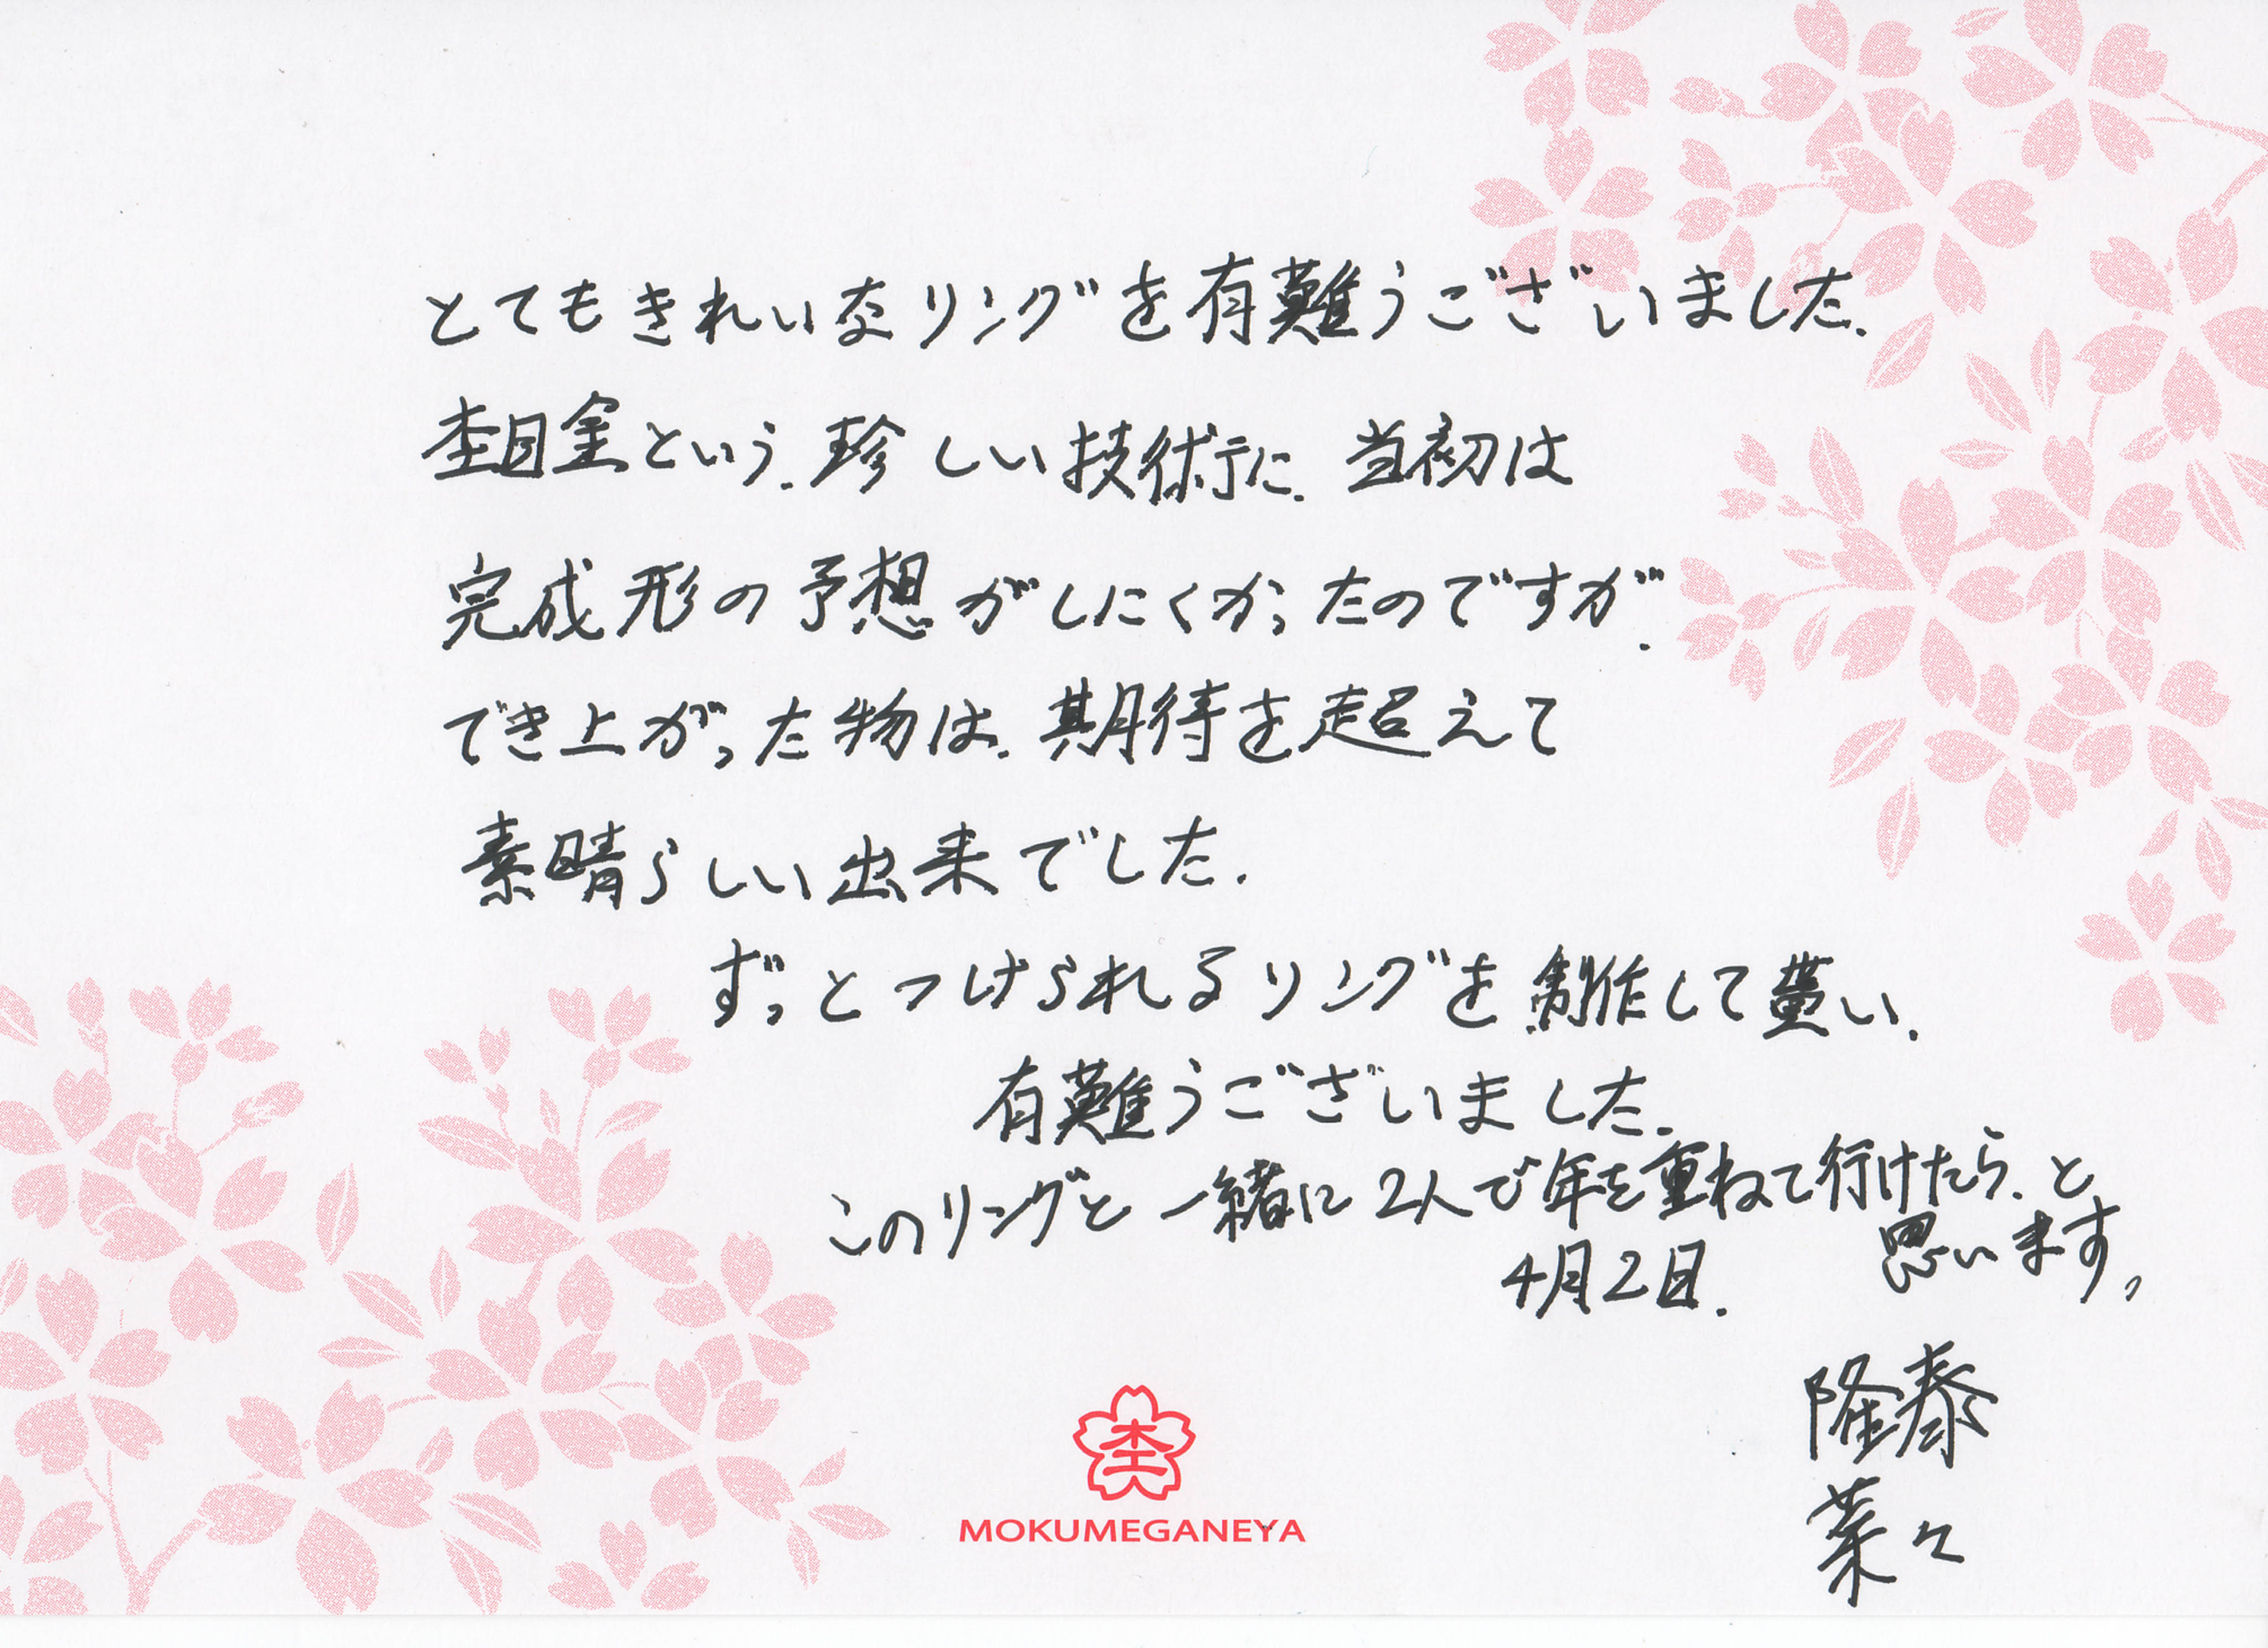 とてもきれいなリングを有難うございました.
杢目金という.珍しい技術に.当初は
完成形の予想がしにくかったのですが.
でき上がった物は.期待を超えて
素晴らしい出来でした.
ずっとつけられるリングを制作して貰い.
有難うございました.
このリングと一緒に2人で年を重ねて行けたら.と
思います。
4月2日.
隆泰
菜々
杢
MOKUMEGANEYA